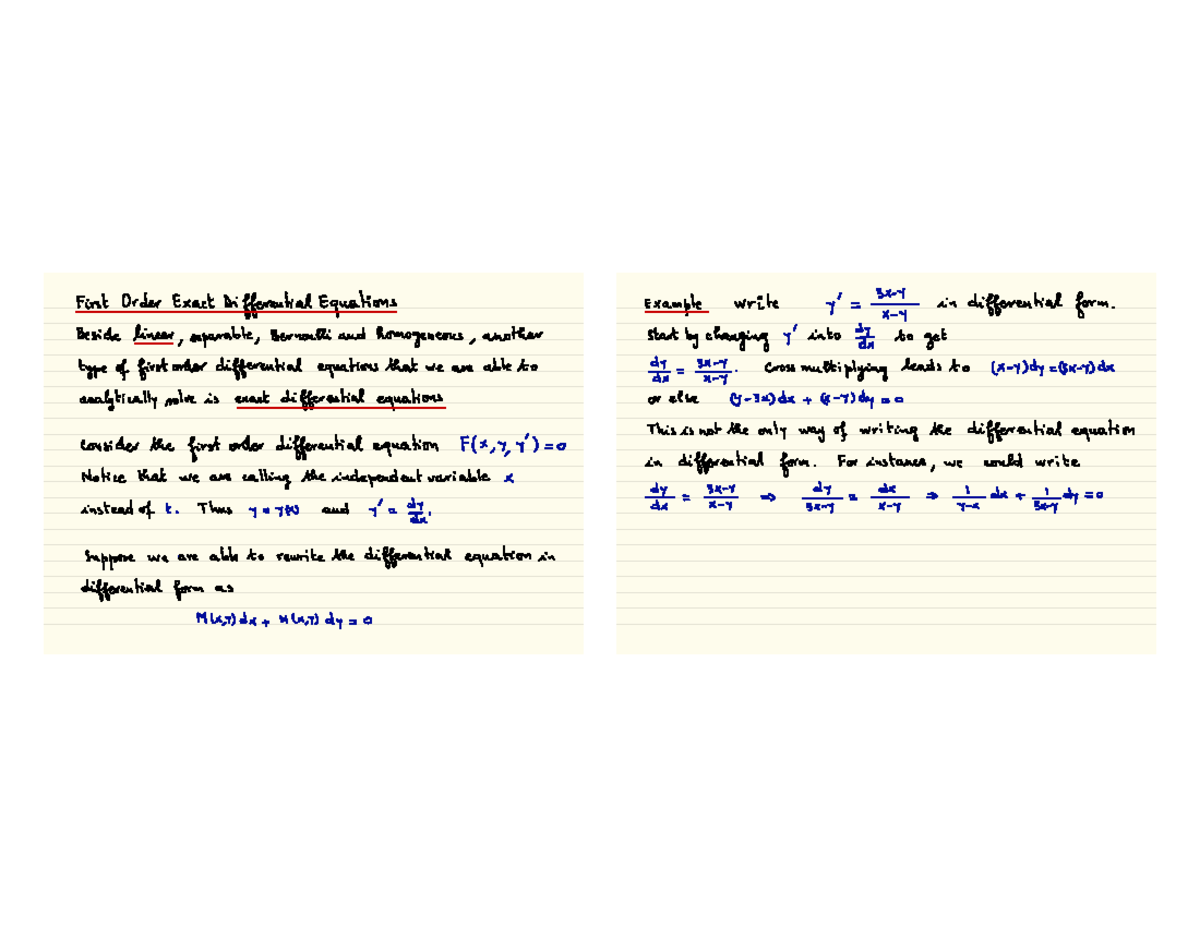 First Order Exact Differential Equations
Beside linear, separable, Bernoulli and homogeneous, another
type of first order differential equations that we are able to
analytically solve is exact differential equations
Consider the first order differential equation F(x, y, y') = 0
Notice that we are calling the independent variable x
instead of t. Thus y = y(x) and y' = dy/dx.
Suppose we are able to rewrite the differential equation in
differential form as
M(x,y) dx + N(x,y) dy = 0
Example Write y' = (3x-y)/(x-y) in differential form.
Start by changing y' into dy/dx to get
dy/dx = (3x-y)/(x-y). Cross multiplying leads to (x-y)dy = (3x-y)dx
or else (y-3x)dx + (x-y)dy = 0
This is not the only way of writing the differential equation
in differential form. For instance, we could write
dy/dx = (3x-y)/(x-y) ⇒ dy/(3x-y) = dx/(x-y) ⇒ 1/(y-x) dx + 1/(3x-y) dy = 0